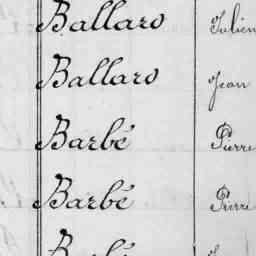 Ballard Julien
Ballard Jean
Barbé Pierre
Barbé Pierre
Barbé